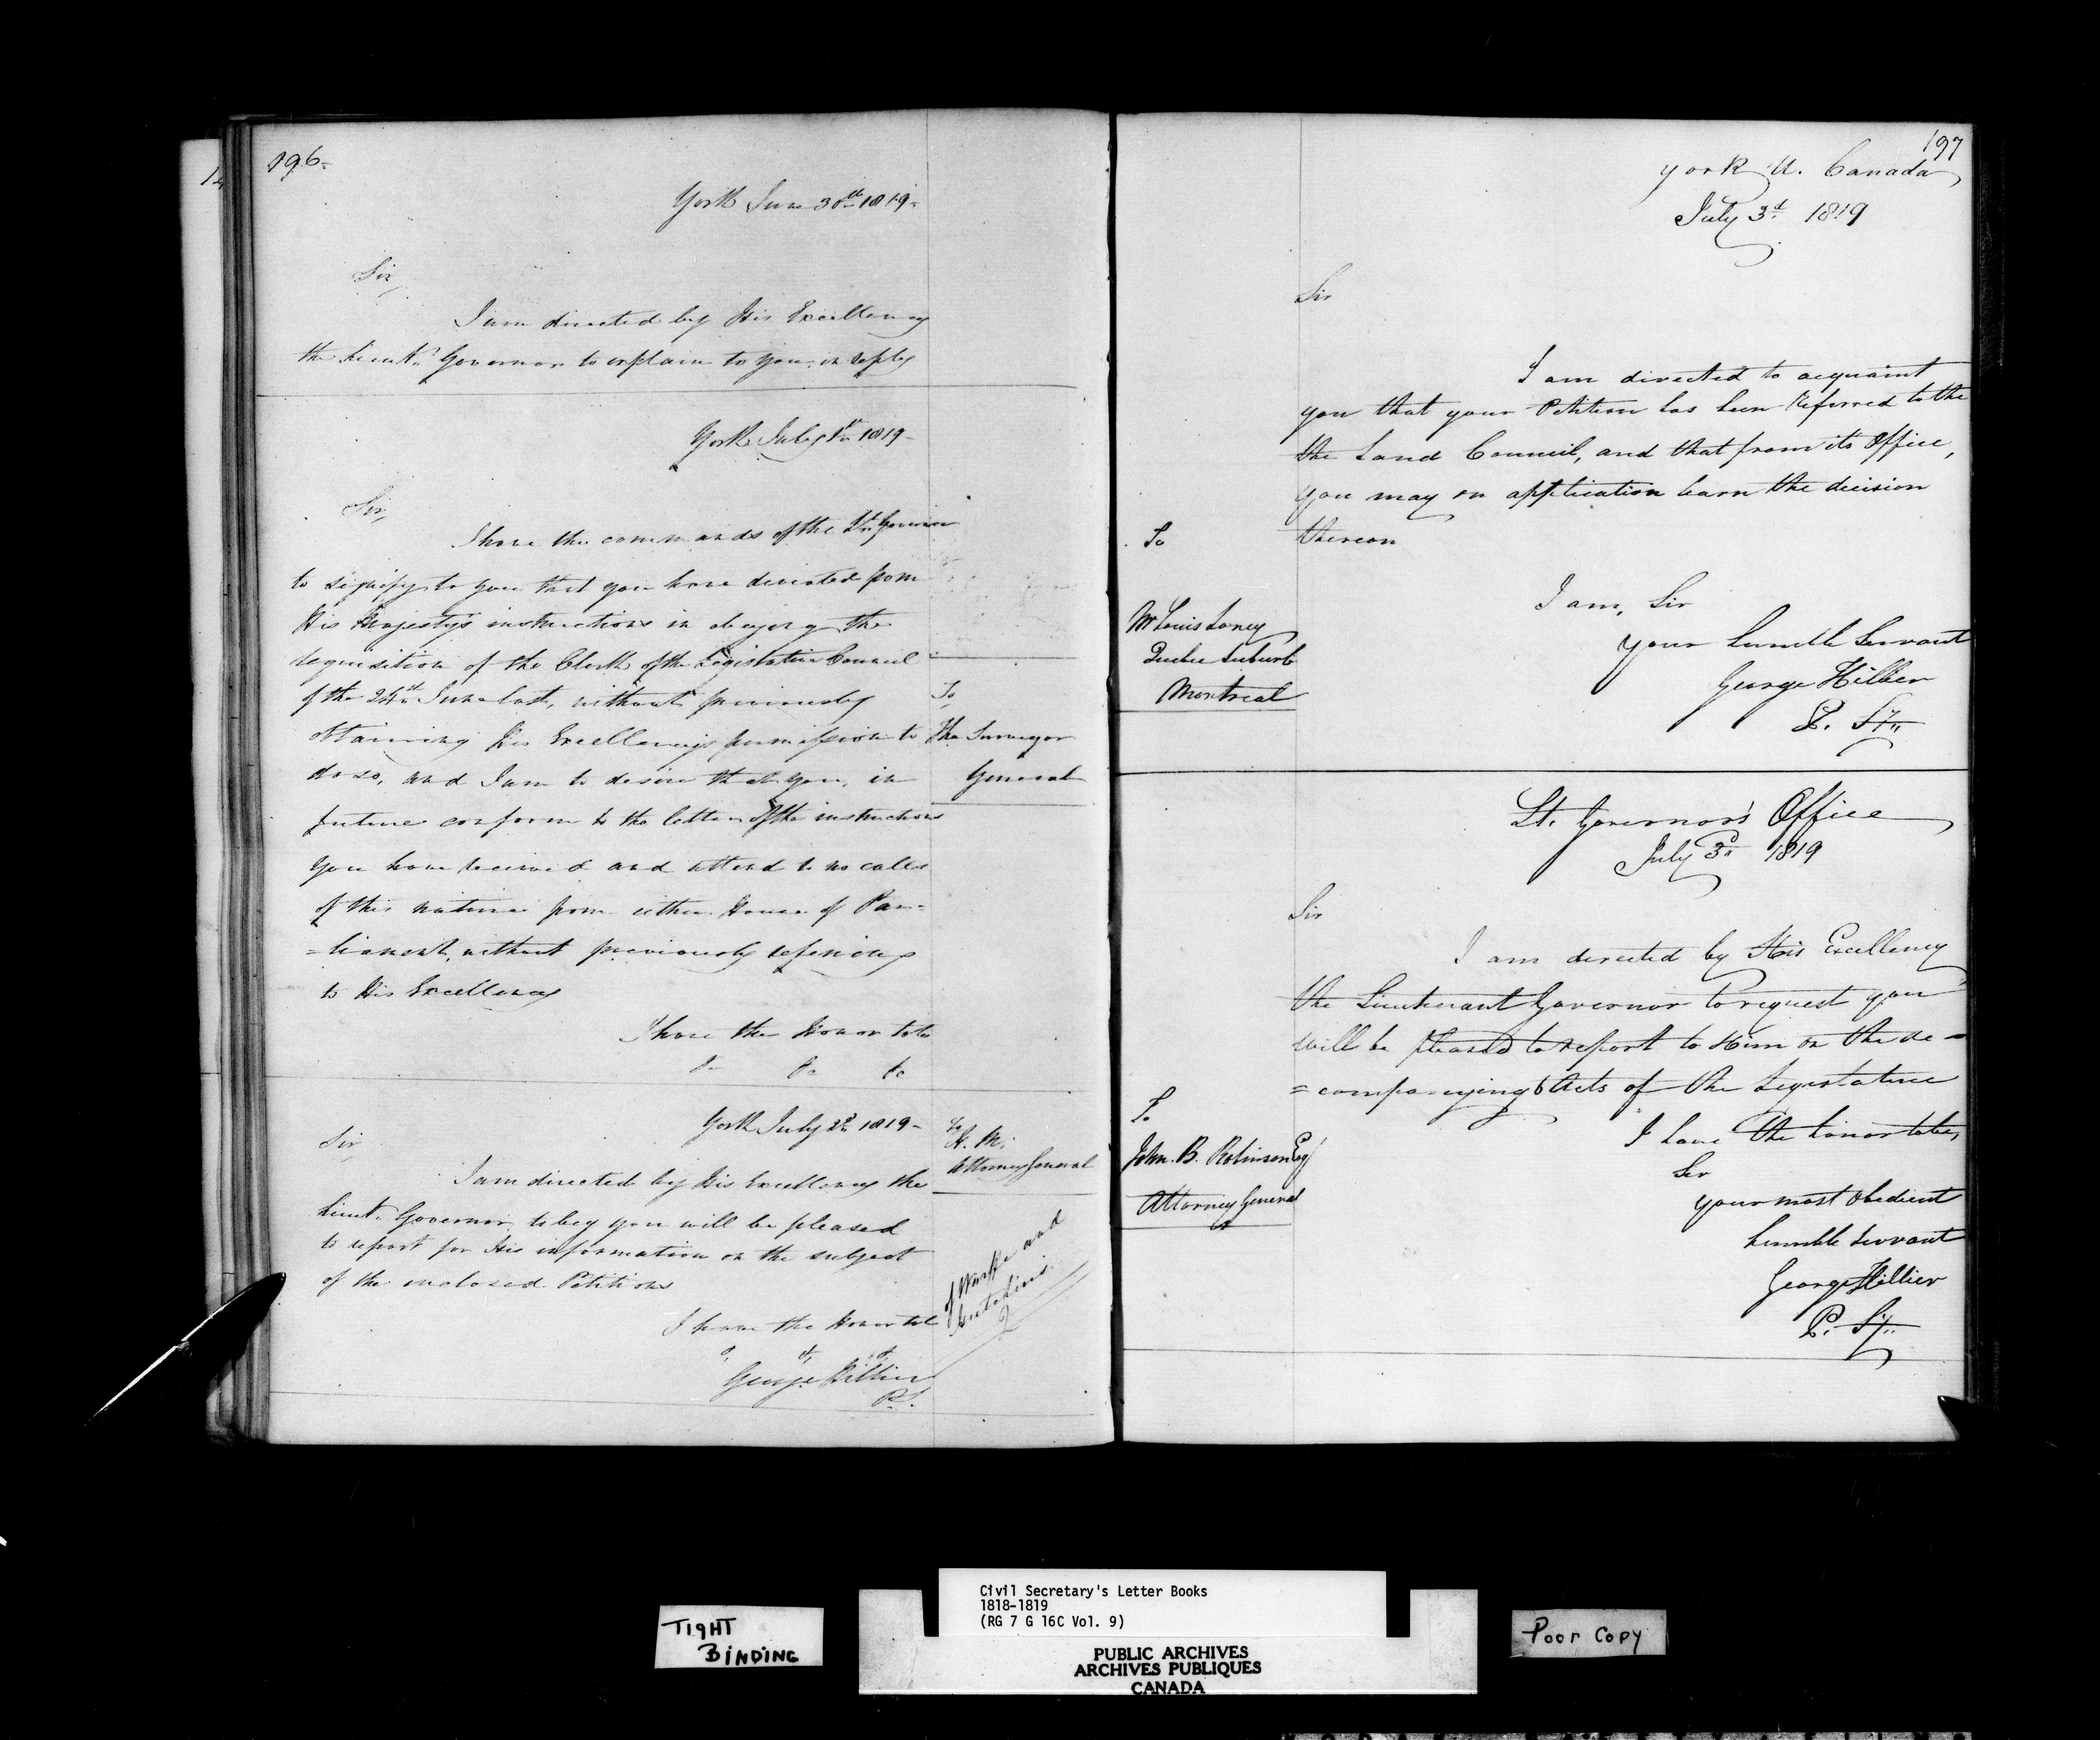 196.
York June 30th 1819.
Sir,
I am directed by His Excellency
the Lieut. Governor to explain to you in reply
York July 1st 1819-
Sir,
I have the commands of the Lt. Governor
to signify to you that you have deviated from
His Majesty's instructions in obeying the
requisition of the Clerk of the Legislative Council
of the 24th June last, without previously
obtaining His Excellency's permission to
do so, and I am to desire that you, in
future conform to the letter of the instructions
you have received and attend to no calls
of this nature from either House of Par=
=liament, without previously refering
to His Excellency
I have the Honor to be
&c &c &c
To
The Surveyor
General
York July 2d 1819-
Sir,
I am directed by His Excellency the
Lieut. Governor, to beg you will be pleased
to report for His information on the subject
of the enclosed Petitions
I have the Honor to be
&. &. &.
George Hillier
P.S.
To
H. M.
Attorney General
of and
197
York U. Canada
July 3d 1819
Sir
I am directed to acquaint
you that your Petition has been Referred to the
the Land Council, and that from its Office,
you may on application learn the decision
thereon
I am, Sir
your humble Servant
George Hillier
P. Sy.
To
Mr Louis Laney
Quebec Suburb
Montreal
Lt. Governor's Office
July 3d 1819
Sir
I am directed by His Excellency
the Lieutenant Governor to request you
will be pleased to report to Him on the ac=
=companying 6 Acts of the Legislature
I have the honor to be,
Sir
your most Obedient
humble Servant
George Hillier
P. Sy.
To
John. B. Robinson Esq
Attorney General
TIGHT
BINDING
Civil Secretary's Letter Books
1818-1819
(RG 7 G 16C Vol. 9)
PUBLIC ARCHIVES
ARCHIVES PUBLIQUES
CANADA
Poor Copy